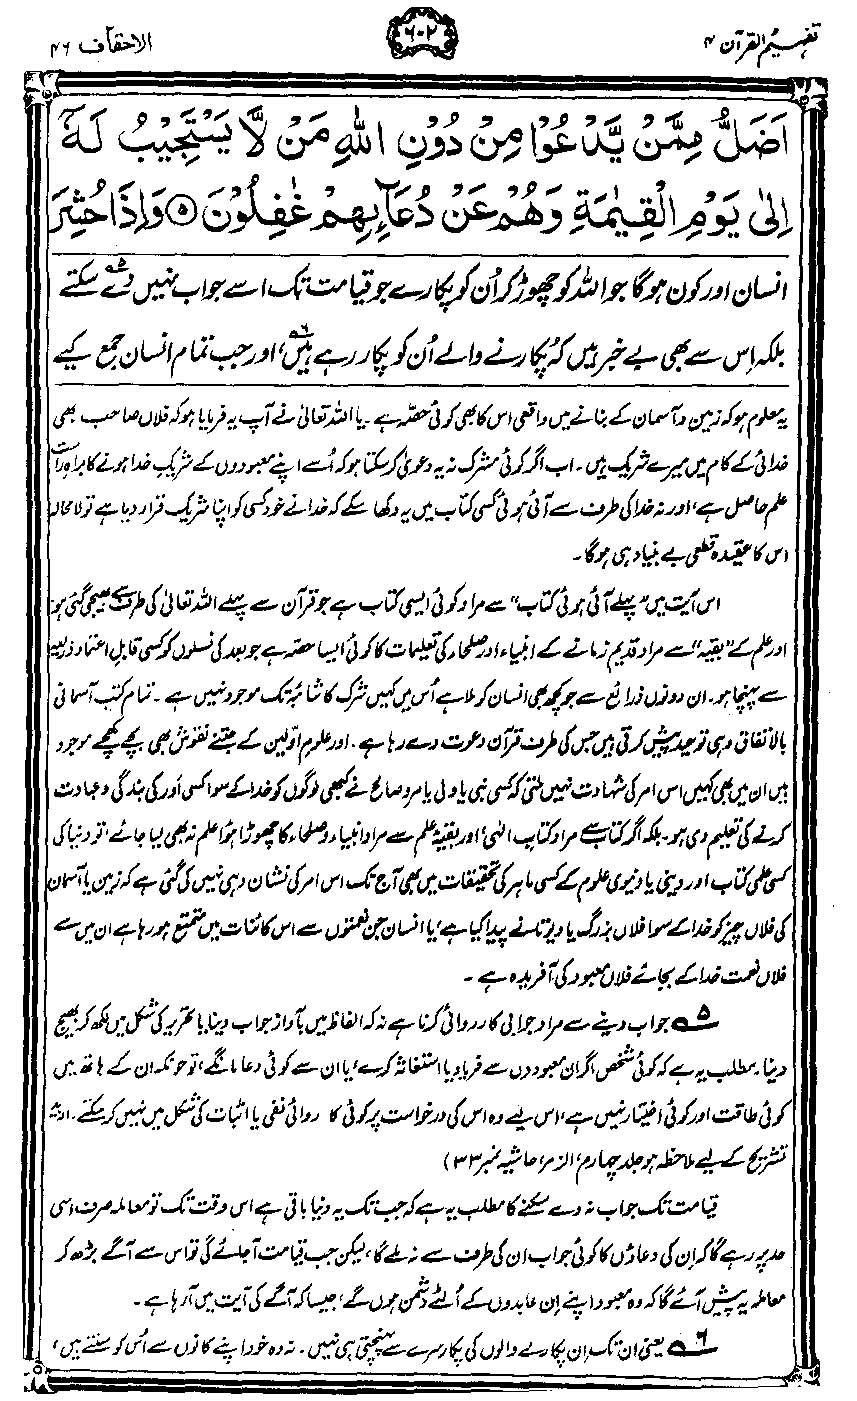 تفہیم القرآن ۴
۶۰۲
الاحقاف ۴۶
اَضَلُّ مِمَّنْ یَّدْعُوْا مِنْ دُوْنِ اللّٰہِ مَنْ لَّا یَسْتَجِیْبُ لَہٗۤ
اِلٰی یَوْمِ الْقِیٰمَةِ وَھُمْ عَنْ دُعَآئِھِمْ غٰفِلُوْنَ ۵ وَاِذَا حُشِرَ
انسان اور کون ہوگا جو اللہ کو چھوڑ کر اُن کو پکارے جو قیامت تک اسے جواب نہیں دے سکتے ۵
بلکہ اِس سے بھی بے خبر ہیں کہ پکارنے والے اُن کو پکار رہے ہیں ۶، اور جب تمام انسان جمع کیے
یہ معلوم ہو کہ زمین و آسمان کے بنانے میں واقعی اس کا بھی کوئی حصّہ ہے۔ یا اللہ تعالیٰ نے آپ یہ فرمایا ہو کہ فلاں صاحب بھی
خدائی کے کام میں میرے شریک ہیں۔ اب اگر کوئی مشرک نہ یہ دعویٰ کر سکتا ہو کہ اُسے اپنے معبودوں کے شریکِ خدا ہونے کا براہِ راست
علم حاصل ہے، اور نہ خدا کی طرف سے آئی ہوئی کسی کتاب میں یہ دکھا سکے کہ خدا نے خود کسی کو اپنا شریک قرار دیا ہے تو لامحالہ
اس کا عقیدہ قطعی بے بنیاد ہی ہوگا۔
اس آیت میں "پہلے آئی ہوئی کتاب" سے مراد کوئی ایسی کتاب ہے جو قرآن سے پہلے اللہ تعالیٰ کی طرف سے بھیجی گئی ہو،
اور علم کے "بقیہ" سے مراد قدیم زمانے کے انبیاء اور صلحاء کی تعلیمات کا کوئی ایسا حصّہ ہے جو بعد کی نسلوں کو کسی قابلِ اعتماد ذریعہ
سے پہنچا ہو۔ ان دونوں ذرائع سے جو کچھ بھی انسان کو ملا ہے اُس میں کہیں شرک کا شائبہ تک موجود نہیں ہے۔ تمام کتب آسمانی
بالاتفاق وہی توحید پیش کرتی ہیں جس کی طرف قرآن دعوت دے رہا ہے۔ اور علومِ اوّلین کے جتنے نقوش بھی بچے کھچے موجود
ہیں ان میں بھی کہیں اس امر کی شہادت نہیں ملتی کہ کسی نبی یا ولی یا مردِ صالح نے کبھی لوگوں کو خدا کے سوا کسی اَور کی بندگی و عبادت
کرنے کی تعلیم دی ہو۔ بلکہ اگر کتاب سے مراد کتابِ الٰہی، اور بقیۂ علم سے مراد انبیاء و صلحاء کا چھوڑا ہوا علم نہ بھی لیا جائے، تو دنیا کی
کسی علمی کتاب اور دینی یا دنیوی علوم کے کسی ماہر کی تحقیقات میں بھی آج تک اس امر کی نشان دہی نہیں کی گئی ہے کہ زمین یا آسمان
کی فلاں چیز کو خدا کے سوا فلاں بزرگ یا دیوتا نے پیدا کیا ہے، یا انسان جن نعمتوں سے اس کائنات میں متمتع ہو رہا ہے ان میں سے
فلاں نعمت خدا کے بجائے فلاں معبود کی آفریدہ ہے۔
۵ جواب دینے سے مراد جوابی کارروائی کرنا ہے نہ کہ الفاظ میں بآواز جواب دینا یا تحریر کی شکل میں لکھ کر بھیج
دینا۔ مطلب یہ ہے کہ کوئی شخص اگر ان معبودوں سے فریاد یا استغاثہ کرے، یا ان سے کوئی دعا مانگے، تو چونکہ ان کے ہاتھ میں
کوئی طاقت اور کوئی اختیار نہیں ہے، اس لیے وہ اس کی درخواست پر کوئی کارروائی نفی یا اثبات کی شکل میں نہیں کر سکتے۔
تشریح کے لیے ملاحظہ ہو جلد چہارم، الزمر، حاشیہ نمبر ۳۳)
قیامت تک جواب نہ دے سکنے کا مطلب یہ ہے کہ جب تک یہ دنیا باقی ہے اس وقت تک تو معاملہ صرف اسی
حد پر رہے گا کہ ان کی دعاؤں کا کوئی جواب ان کی طرف سے نہ ملے گا، لیکن جب قیامت آجائے گی تو اس سے آگے بڑھ کر
معاملہ یہ پیش آئے گا کہ وہ معبود اپنے اِن عابدوں کے اُلٹے دشمن ہوں گے، جیسا کہ آگے کی آیت میں آ رہا ہے۔
۶ یعنی ان تک اِن پکارنے والوں کی پکار سرے سے پہنچتی ہی نہیں۔ نہ وہ خود اپنے کانوں سے اُس کو سنتے ہیں،